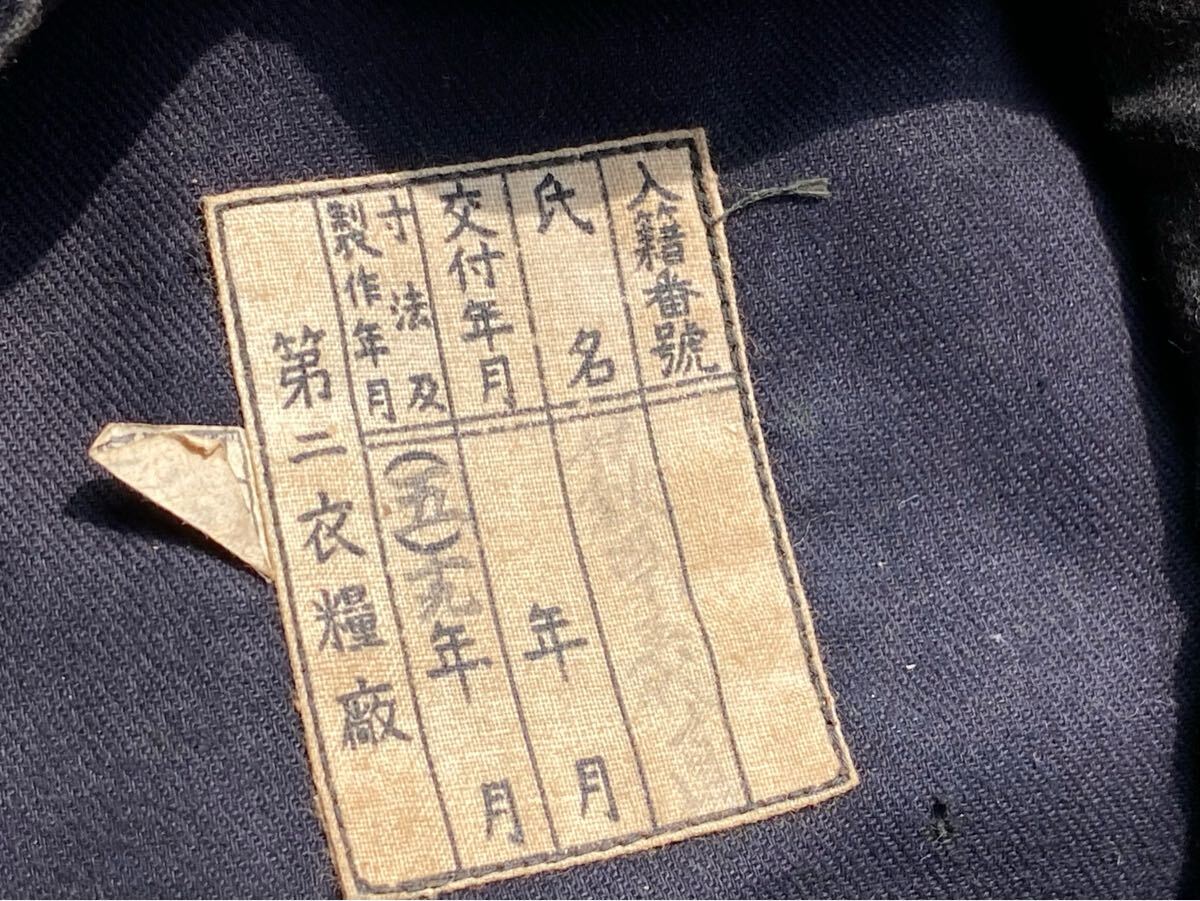 入籍番號
氏名
交付年月
年 月
寸法及
製作年月
(五)十九年 月
第二衣糧廠